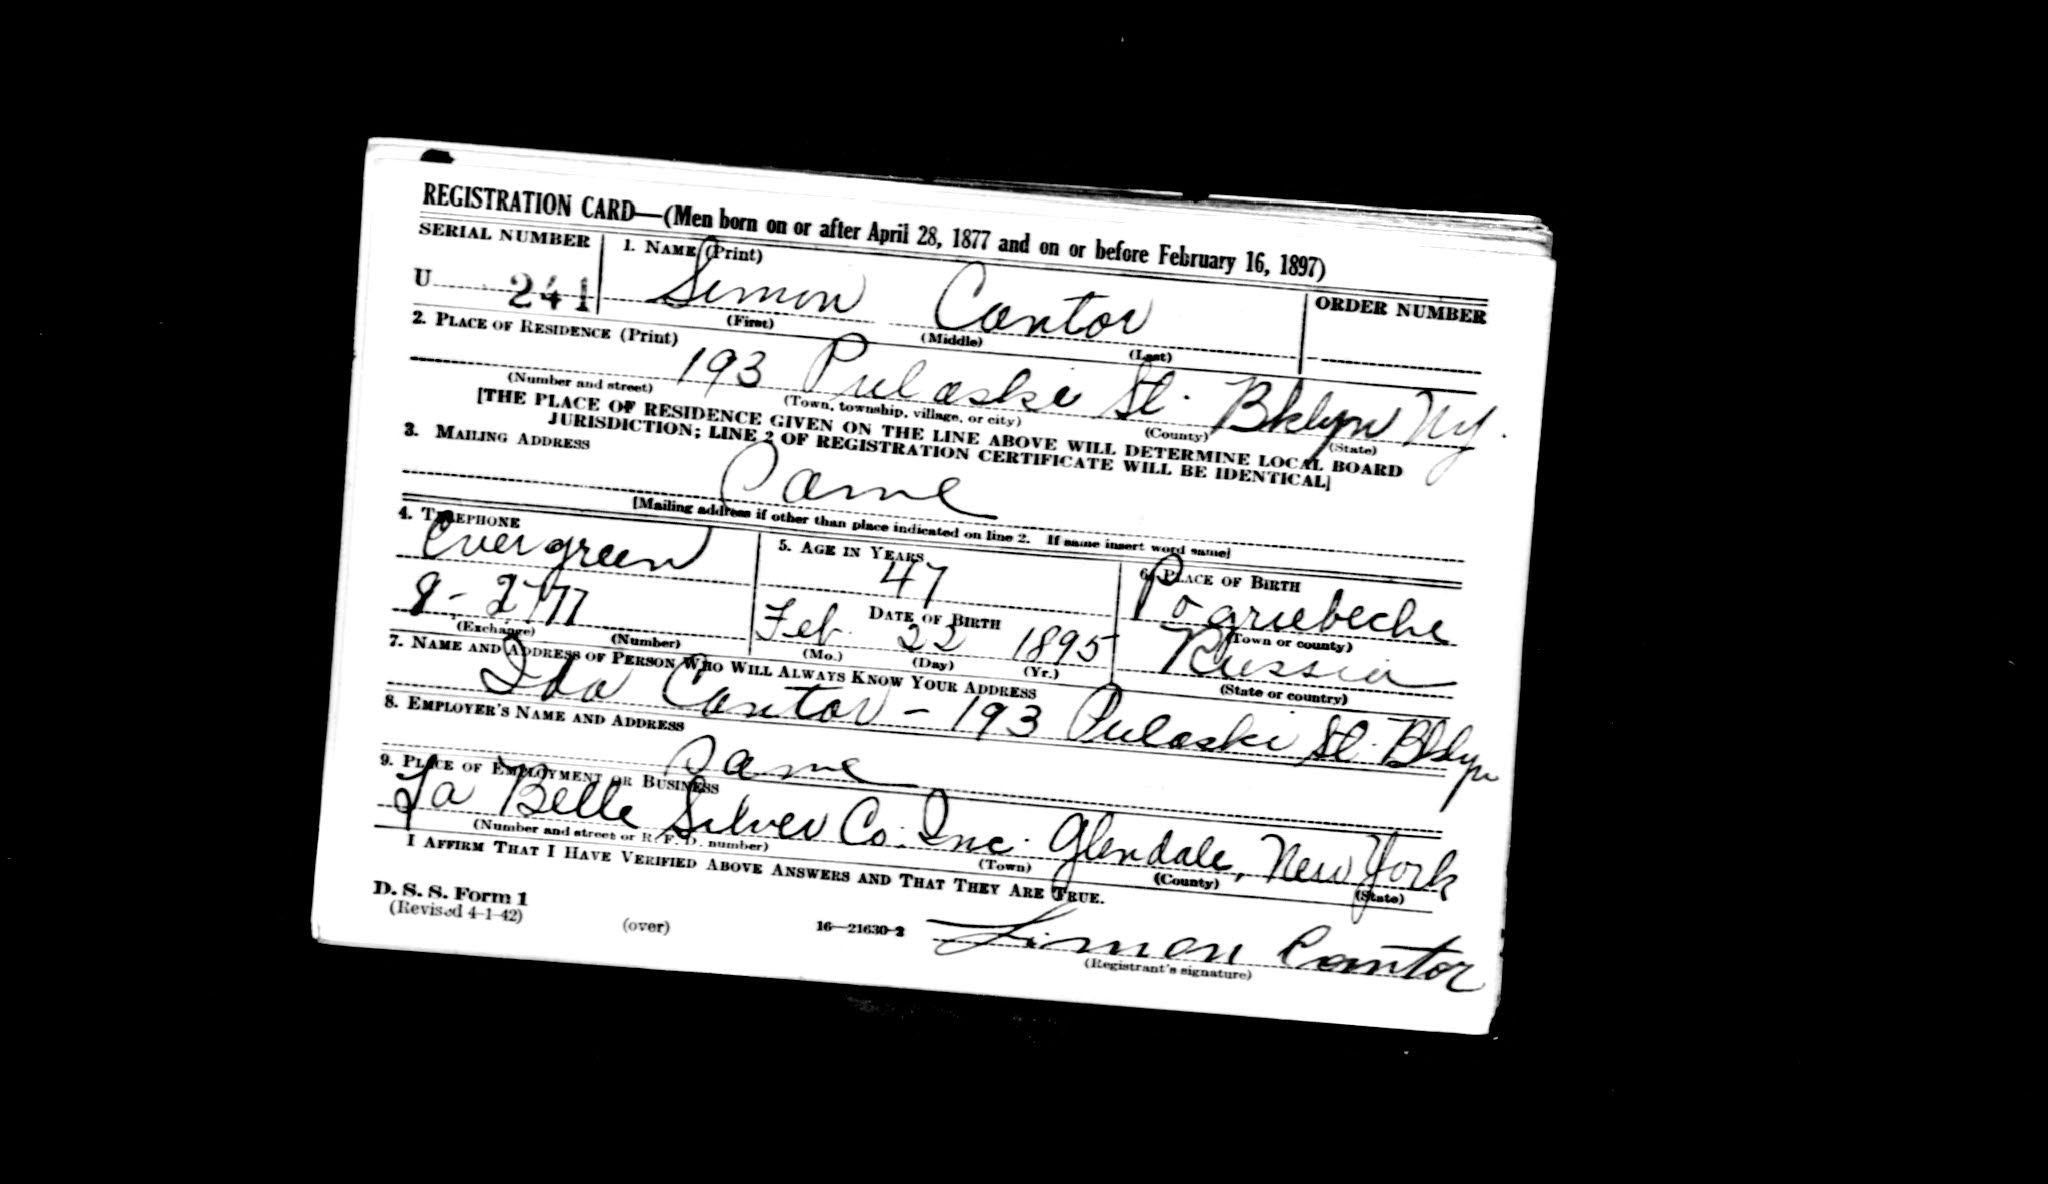 REGISTRATION CARD—(Men born on or after April 28, 1877 and on or before February 16, 1897)
SERIAL NUMBER
1. NAME (Print)
ORDER NUMBER
U 241
Simon Cantor
(First) (Middle) (Last)
2. PLACE OF RESIDENCE (Print)
193 Pulaski St. Bklyn Ny.
(Number and street) (Town, township, village, or city) (County) (State)
[THE PLACE OF RESIDENCE GIVEN ON THE LINE ABOVE WILL DETERMINE LOCAL BOARD
JURISDICTION; LINE 2 OF REGISTRATION CERTIFICATE WILL BE IDENTICAL]
3. MAILING ADDRESS
Same
[Mailing address if other than place indicated on line 2. If same insert word same]
4. TELEPHONE
Evergreen
8-2777
(Exchange) (Number)
5. AGE IN YEARS
47
DATE OF BIRTH
Feb. 22 1895
(Mo.) (Day) (Yr.)
6. PLACE OF BIRTH
Pogriebeche
(Town or county)
Russia
(State or country)
7. NAME AND ADDRESS OF PERSON WHO WILL ALWAYS KNOW YOUR ADDRESS
Ida Cantor - 193 Pulaski St. Bklyn
8. EMPLOYER'S NAME AND ADDRESS
Same
9. PLACE OF EMPLOYMENT OR BUSINESS
La Belle Silver Co. Inc. Glendale, New York
(Number and street or R. F. D. number) (Town) (County) (State)
I AFFIRM THAT I HAVE VERIFIED ABOVE ANSWERS AND THAT THEY ARE TRUE.
D. S. S. Form 1
(Revised 4-1-42)
(over)
16—21630-2
Simon Cantor
(Registrant's signature)